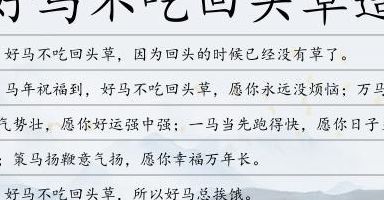 好马不吃回头草造
好马不吃回头草，因为回头的时候已经没有草了。
马年祝福到，好马不吃回头草，愿你永远没烦恼；万马
气势壮，愿你好运强中强；一马当先跑得快，愿你日子
；策马扬鞭意气扬，愿你幸福万年长。
好马不吃回头草，所以好马总挨饿。